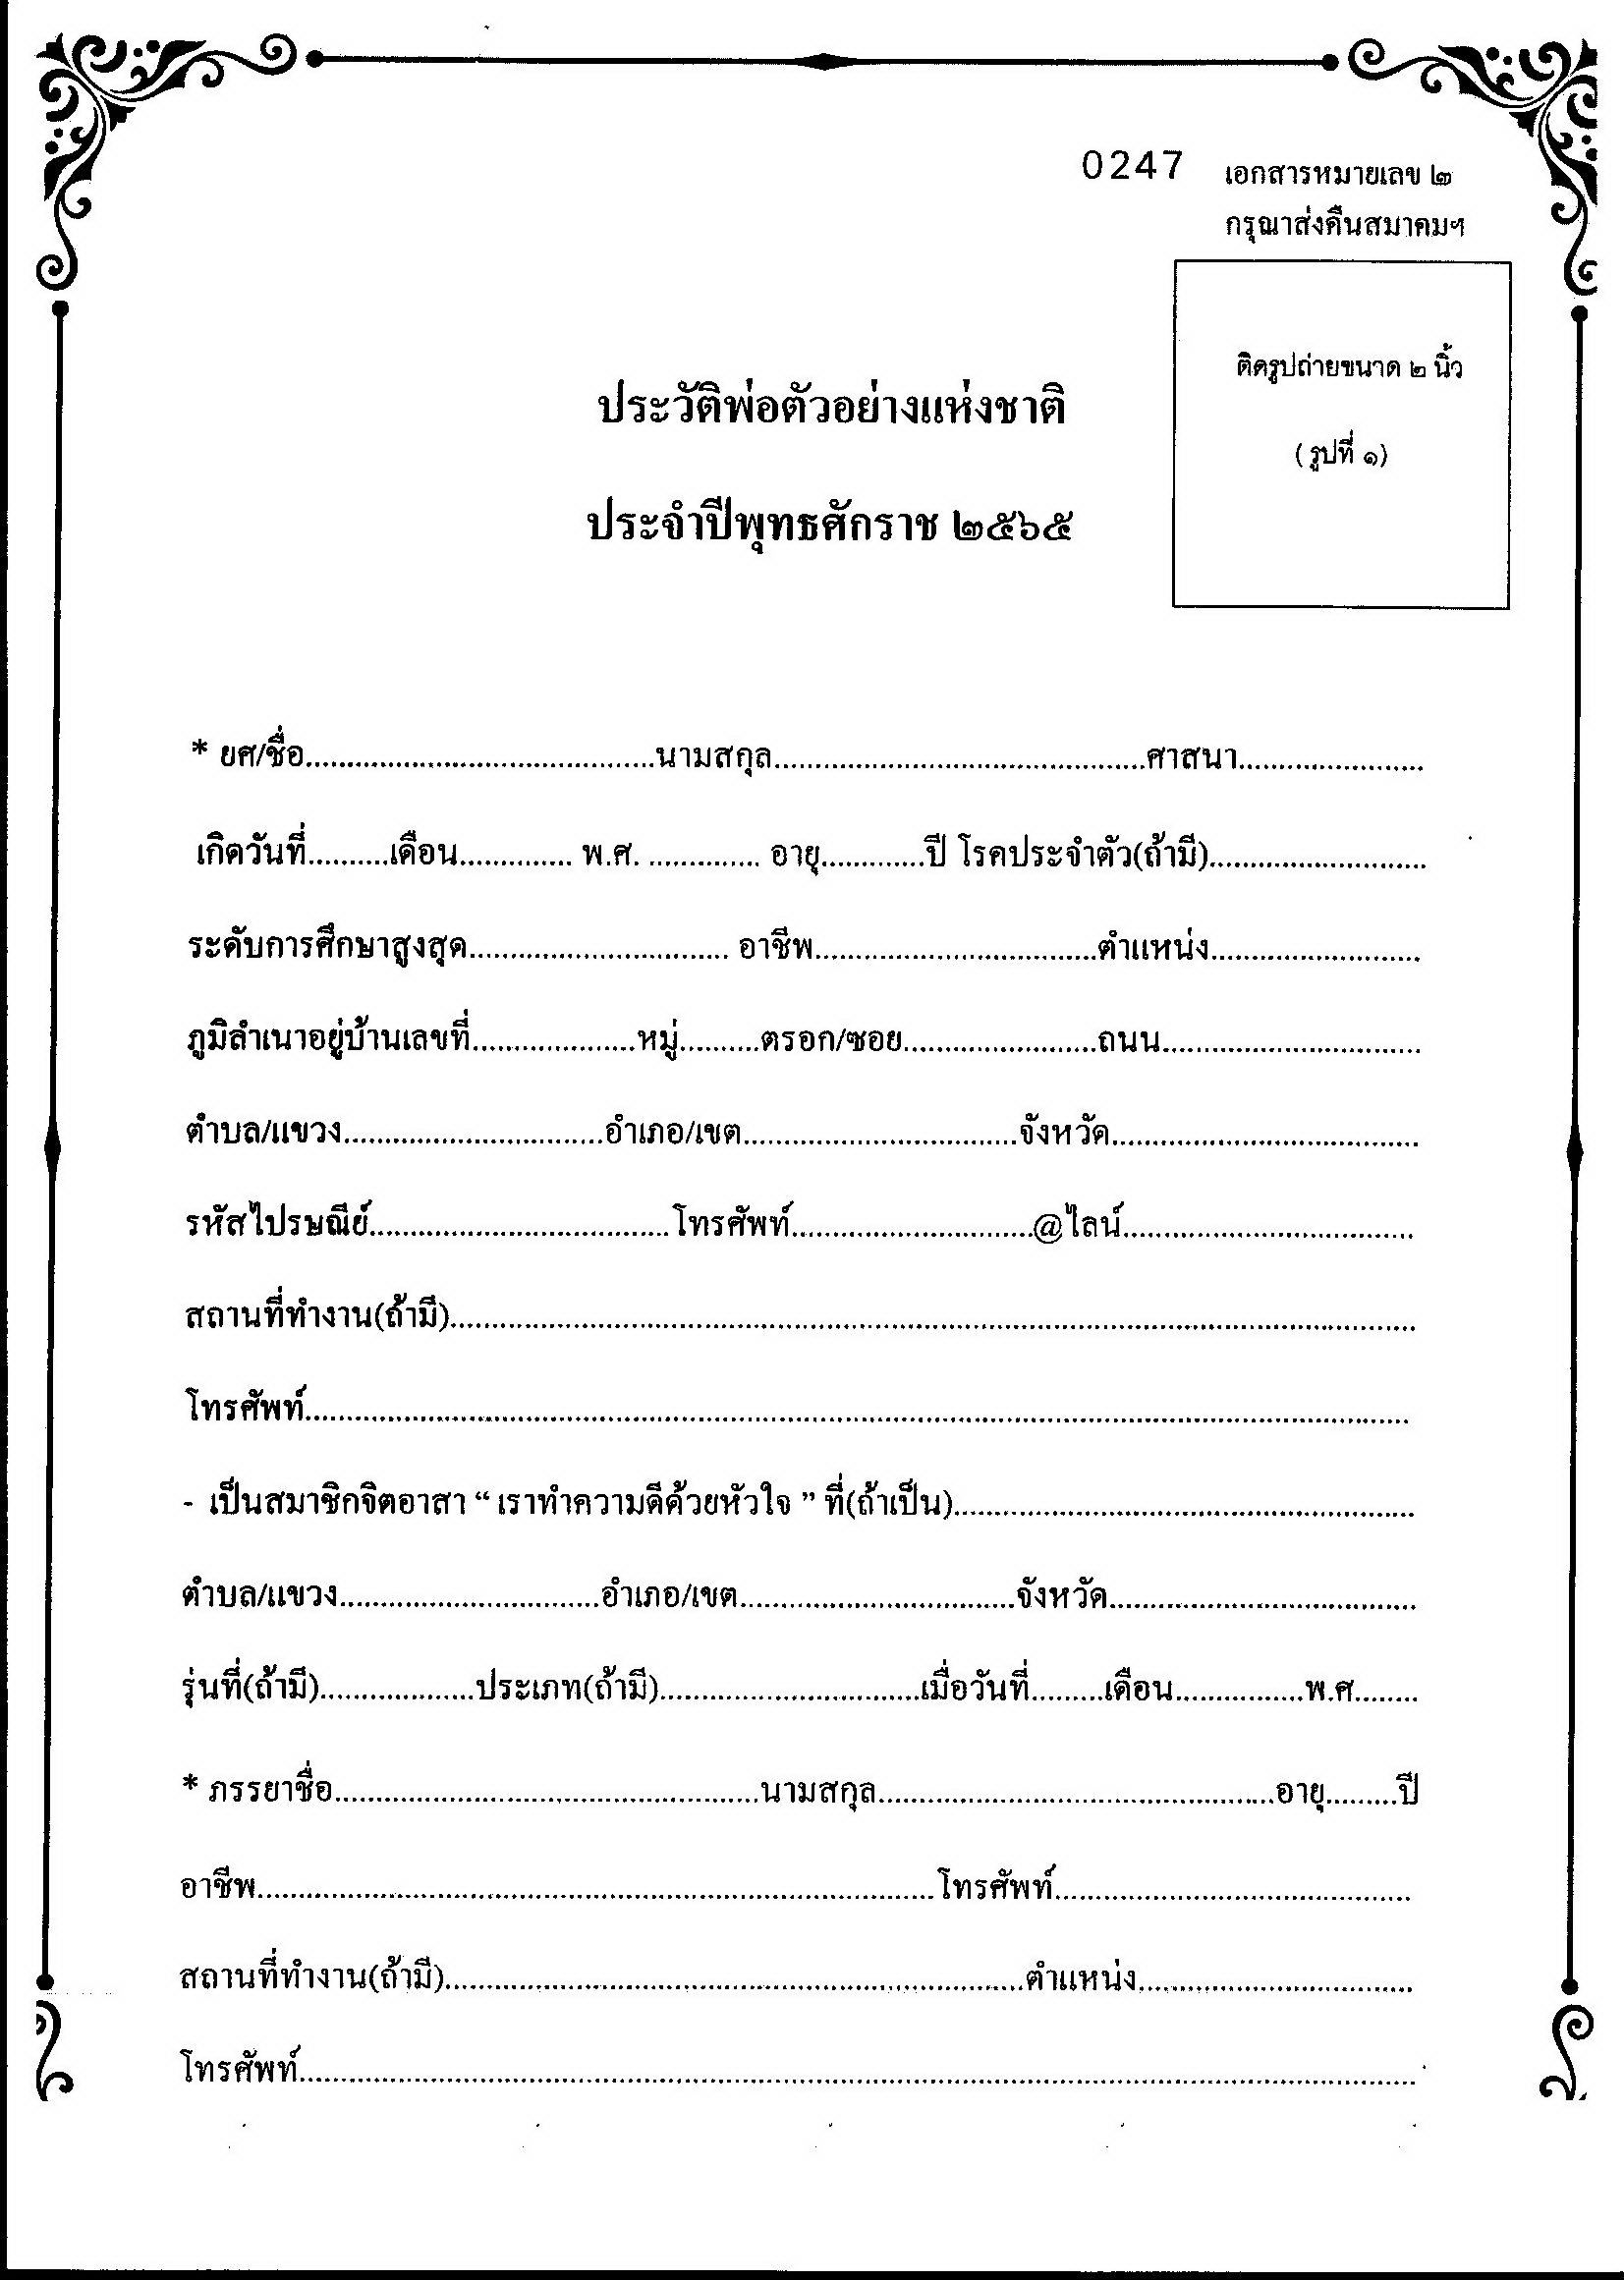 0247 เอกสารหมายเลข ๒
กรุณาส่งคืนสมาคมฯ
ติดรูปถ่ายขนาด ๒ นิ้ว
(รูปที่ ๑)
ประวัติพ่อตัวอย่างแห่งชาติ
ประจำปีพุทธศักราช ๒๕๖๕
* ยศ/ชื่อ....................................นามสกุล......................................ศาสนา......................
เกิดวันที่..........เดือน.............. พ.ศ. .............. อายุ.............ปี โรคประจำตัว(ถ้ามี)...........................
ระดับการศึกษาสูงสุด................................ อาชีพ...................................ตำแหน่ง..........................
ภูมิลำเนาอยู่บ้านเลขที่....................หมู่..........ตรอก/ซอย........................ถนน................................
ตำบล/แขวง................................อำเภอ/เขต..................................จังหวัด......................................
รหัสไปรษณีย์.....................................โทรศัพท์..............................@ไลน์....................................
สถานที่ทำงาน(ถ้ามี)........................................................................................................................
โทรศัพท์.........................................................................................................................................
- เป็นสมาชิกจิตอาสา “ เราทำความดีด้วยหัวใจ ” ที่(ถ้าเป็น).........................................................
ตำบล/แขวง................................อำเภอ/เขต..................................จังหวัด......................................
รุ่นที่(ถ้ามี)...................ประเภท(ถ้ามี)................................เมื่อวันที่.........เดือน................พ.ศ........
* ภรรยาชื่อ.....................................................นามสกุล.................................................อายุ.........ปี
อาชีพ....................................................................................โทรศัพท์............................................
สถานที่ทำงาน(ถ้ามี)........................................................................ตำแหน่ง..................................
โทรศัพท์..........................................................................................................................................